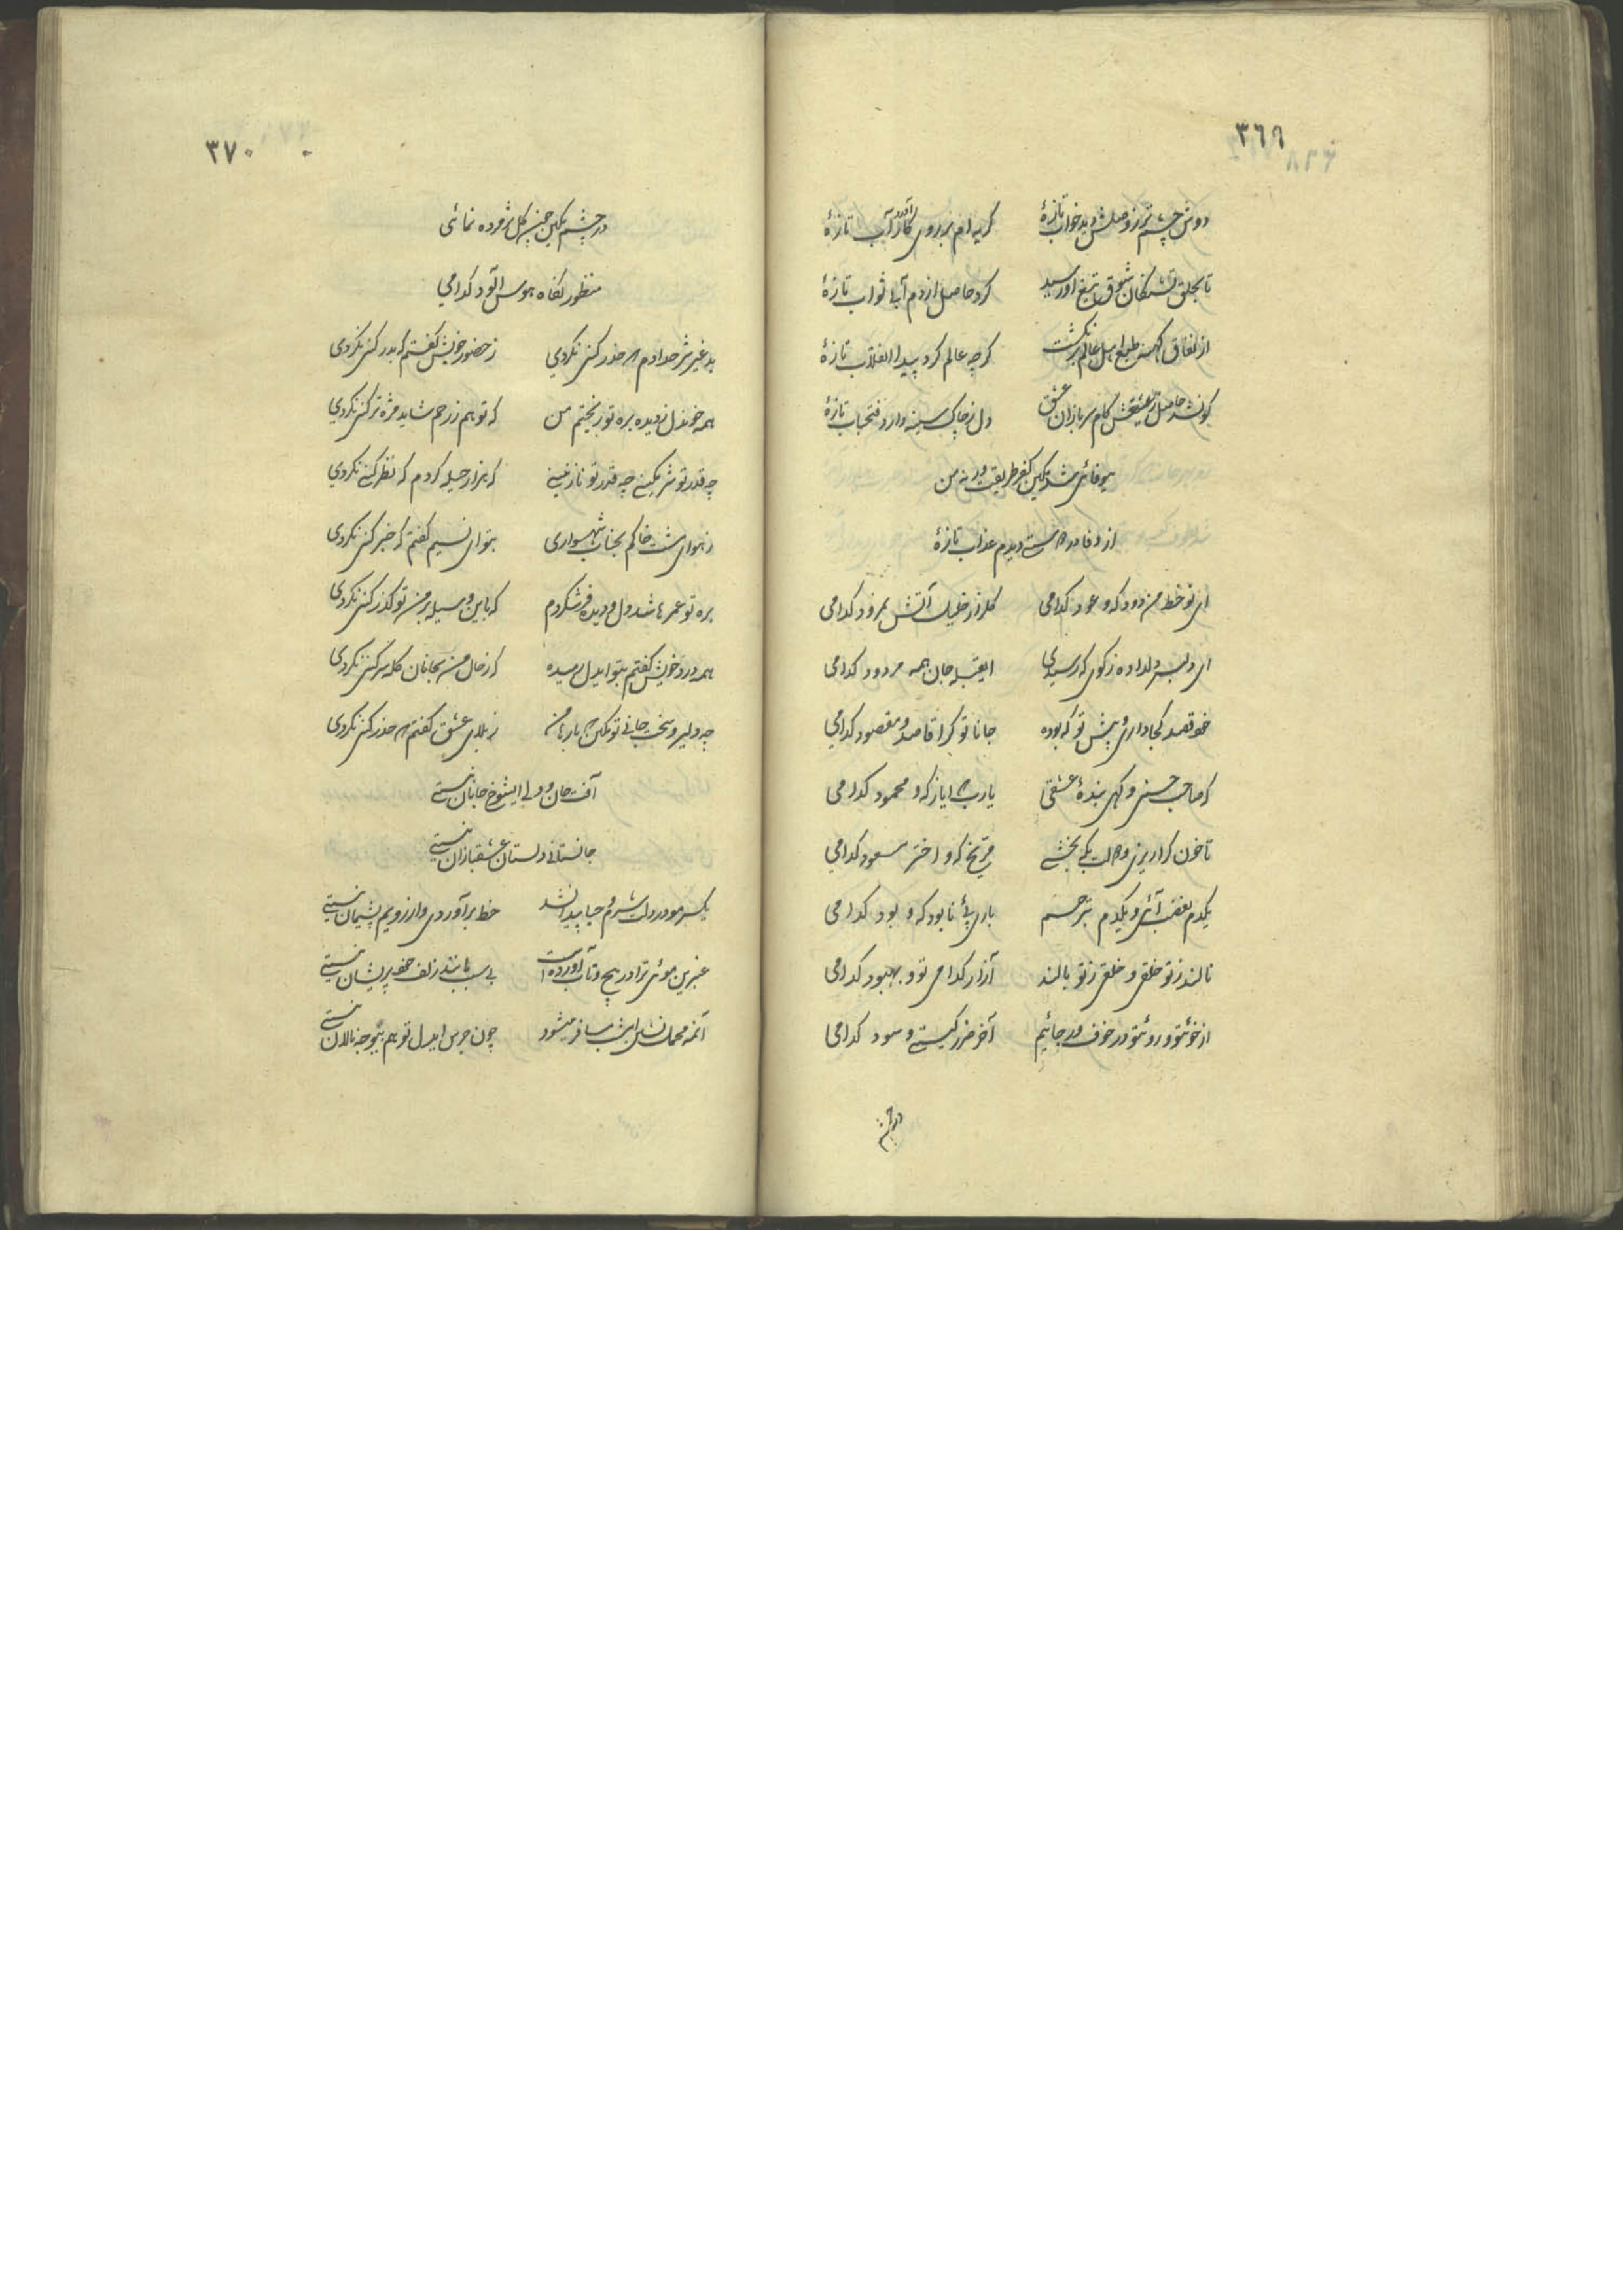 ٣٦٩
دوش چشم تر ز وصلش دید خواب تازهٔ گریه ام بر روی کار آورد آب تازهٔ
تا بحلق تشنگان شوق تیغ او رسید کرد حاصل از دم آبی ثواب تازهٔ
از نفاق کهنه طبع اهل عالم برنگشت گرچه عالم کرد پیدا انقلاب تازهٔ
کو نشد حاصل ز تیغش کام سربازان عشق دل ز چاک سینه دارد فتحباب تازهٔ
بیوفائی شد تمکین کفر طریقت ورنه من
از وفا در دست دیدم عذاب تازهٔ
ای نو خط من دود که و عود کدامی گلزار خلیل آتش نمرود کدامی
ای دلبر دلداده ز کوی که رسیدی ای قبله جان همه مردود کدامی
خود قصد کجا داری و پیش تو که بوده جانا تو کرا قاصد و مقصود کدامی
که صاحب حسنی و گهی بندهٔ عشقی یا رب ایاز که و محمود کدامی
تا خون کرا ریزی و وصلت بکه بخشی مریخ که و اختر مسعود کدامی
یکدم بغضب آئی و یکدم بترحم باری پئ نابود که و بود کدامی
نالند ز تو خلقی و خلقی ز تو بالند آزار کدامی تو و بهبود کدامی
از خوی تو و روی تو در خوف و رجائیم آخر ضرر کیستی و سود کدامی
در چشم
٣٧٠
در چشم تمکین چنین گل پژمرده نمائی
منظور نگاه هوس آلود کدامی
بد غیر شرح دادم حذر کنی نکردی ز حضور خویش گفتم که بدر کنی نکردی
همه خون دل ز دیده بره تو ریختم من که تو هم ز رحم شاید مژه تر کنی نکردی
چه قدر تو شرمگینی چه قدر تو نازنینی که هزار حیله کردم که نظر کنی نکردی
ز هوای مشت خاکم بجناب شهسواری بتو ای نسیم گفتم که خبر کنی نکردی
بره تو عمرها شد دل و دیده فرش کردم که باین وسیله بر من تو گذر کنی نکردی
همه درد خویش گفتم بتو ایدل رمیده که ز حال من بجانان گله سر کنی نکردی
چه دلیر و سخت جانی تو تمکین بارها من ز بلای عشق گفتم حذر کنی نکردی
آفت جان و دلی ای شوخ جانان نیستی
جانستانی دلستان عشقبازان نیستی
یکسر مو در دلت شرم و حیا پیدا نشد خط برآوردی و از رویم پشیمان نیستی
عنبرین موئی ترا در پیچ و تاب آورده است بی سبب مانند زلف خود پریشان نیستی
آنمه محمل نشین امشب مسافر میشود چون جرس ایدل تو هم بیوجه نالان نیستی